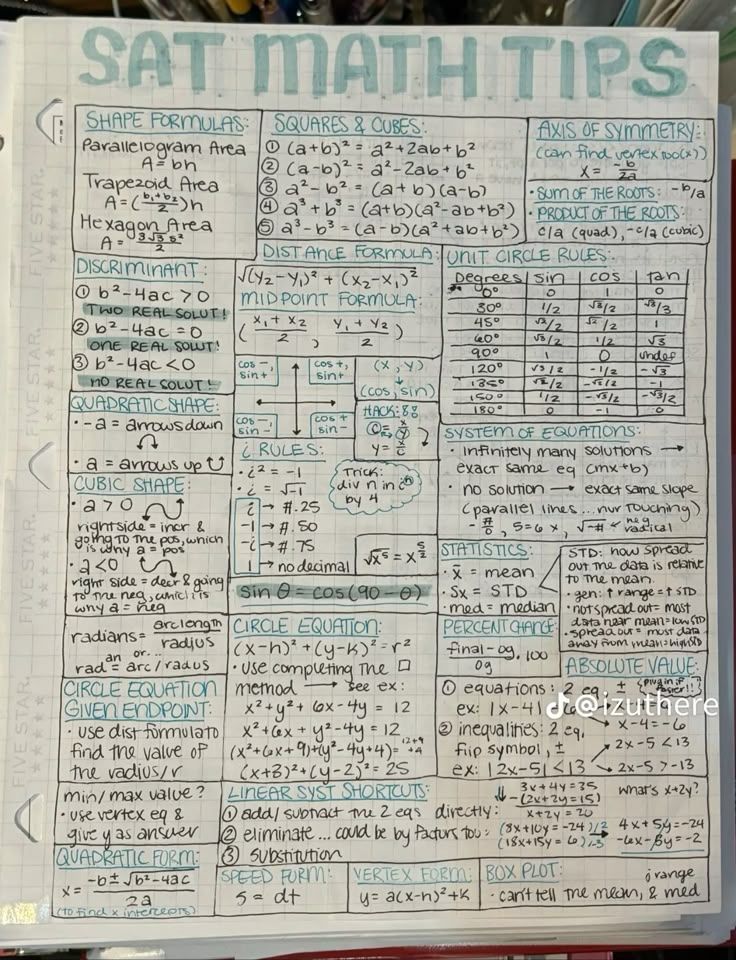 SAT MATH TIPS
SHAPE FORMULAS:
Parallelogram Area
A = bh
Trapezoid Area
A = (b₁+b₂/2)h
Hexagon Area
A = 3√3 s²/2
SQUARES & CUBES:
① (a+b)² = a²+2ab+b²
② (a-b)² = a²-2ab+b²
③ a²-b² = (a+b)(a-b)
④ a³+b³ = (a+b)(a²-ab+b²)
⑤ a³-b³ = (a-b)(a²+ab+b²)
AXIS OF SYMMETRY:
(can find vertex too(x))
x = -b/2a
• SUM OF THE ROOTS: -b/a
• PRODUCT OF THE ROOTS:
c/a (quad), -c/a (cubic)
DISCRIMINANT:
① b²-4ac > 0
TWO REAL SOLUT!
② b²-4ac = 0
ONE REAL SOLUT!
③ b²-4ac < 0
NO REAL SOLUT!
DISTANCE FORMULA:
√(y₂-y₁)² + (x₂-x₁)²
MIDPOINT FORMULA:
(x₁+x₂/2, y₁+y₂/2)
UNIT CIRCLE RULES:
Degrees | sin | cos | tan
0° | 0 | 1 | 0
30° | 1/2 | √3/2 | √3/3
45° | √2/2 | √2/2 | 1
60° | √3/2 | 1/2 | √3
90° | 1 | 0 | undef
120° | √3/2 | -1/2 | -√3
135° | √2/2 | -√2/2 | -1
150° | 1/2 | -√3/2 | -√3/2
180° | 0 | -1 | 0
cos -, sin +
cos +, sin +
cos - sin -
cos + sin -
(x, y)
↓
(cos, sin)
HACK:
y = x/c
QUADRATIC SHAPE:
• -a = arrows down
• a = arrows up
CUBIC SHAPE:
• a > 0
right side = incr &
going to the pos, which
is why a = pos
• a < 0
right side = decr & going
to the neg, which is
why a = neg
i RULES:
• i² = -1
• i = √-1
i → #.25
-1 → #.50
-i → #.75
1 → no decimal
Trick:
div n in iⁿ
by 4
√x⁵ = x^5/2
sin θ = cos(90 - θ)
SYSTEM OF EQUATIONS:
• infinitely many solutions →
exact same eq (mx+b)
• no solution → exact same slope
(parallel lines... nvr touching)
- #/0, 5=6x, √-# ← neg radical
STATISTICS:
• x̄ = mean
• Sx = STD
• med = median
STD: how spread
out the data is relative
to the mean.
• gen: ↑ range = ↑ STD
• not spread out = most
data near mean = low STD
• spread out = most data
away from mean = high STD
radians = arc length/radius
an or...
rad = arc/radus
CIRCLE EQUATION:
(x-h)² + (y-k)² = r²
• use completing the □
method → see ex:
x²+y²+6x-4y = 12
x²+6x+y²-4y = 12
(x²+6x+9)+(y²-4y+4) = 12+9+4
(x+3)²+(y-2)² = 25
PERCENT CHANGE:
final-og/og · 100
ABSOLUTE VALUE:
① equations: 2 eq, ± {plug in if easier!!}
ex: |x-4|
x-4 = -6
@izuthere
② inequalities: 2 eq,
flip symbol, ±
ex: |2x-5| < 13
2x-5 < 13
2x-5 > -13
CIRCLE EQUATION
GIVEN ENDPOINT:
• use dist formula to
find the value of
the radius/r
min/max value?
• use vertex eq &
give y as answer
LINEAR SYST SHORTCUTS:
① add/subtract the 2 eqs directly:
3x+4y=35
-(2x+2y=15)
x+2y=20
what's x+2y?
② eliminate... could be by factors too:
(8x+10y = -24)/2
(18x+15y = 6)/-3
4x+5y=-24
-6x-5y=-2
③ substitution
QUADRATIC FORM:
x = -b±√b²-4ac/2a
(to find x intercepts)
SPEED FORM:
s = dt
VERTEX FORM:
y = a(x-h)²+k
BOX PLOT:
range
• can't tell the mean, & med
FIVE STAR.
FIVE STAR.
FIVE STAR.
FIVE STAR.